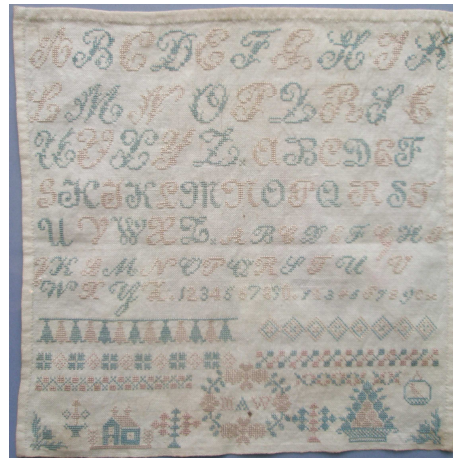 A B C D E F G H I K
L M N O P Q R S T
U V X Y Z. A B C D E F
G H I K L M N O P Q R S T
U V W X Z. A B C D E F G H I
J K L M N O P Q R S T U V
W X Y Z. 1 2 3 4 5 6 7 8 9 0 1 2 3 4 5 6 7 8 9 0